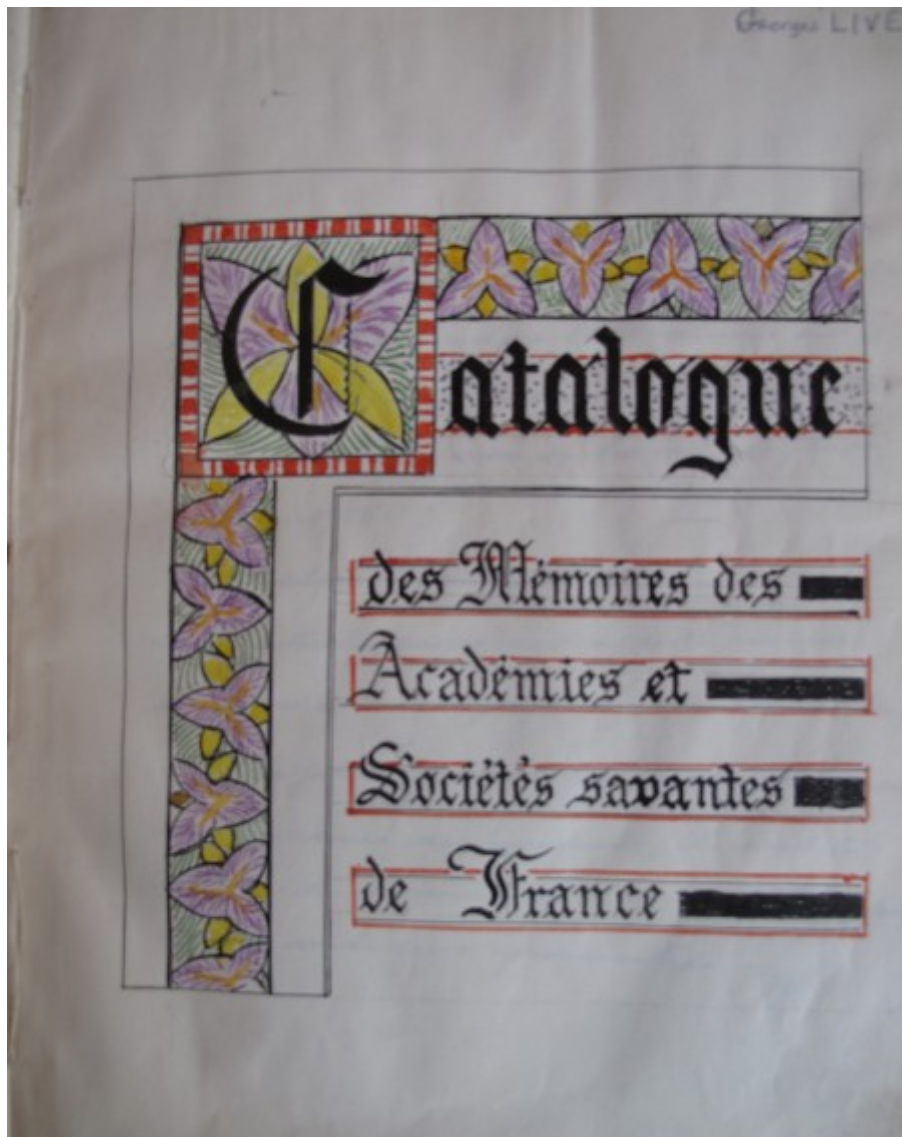 Georges LIVE
Catalogue
des Mémoires des
Académies et
Sociétés savantes
de France